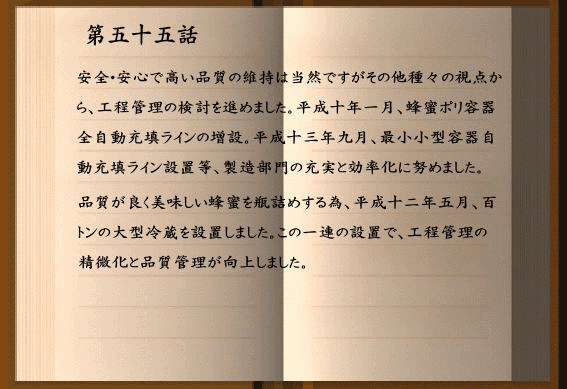 第五十五話
安全・安心で高い品質の維持は当然ですがその他種々の視点か
ら、工程管理の検討を進めました。平成十年一月、蜂蜜ポリ容器
全自動充填ラインの増設。平成十三年九月、最小小型容器自
動充填ライン設置等、製造部門の充実と効率化に努めました。
品質が良く美味しい蜂蜜を瓶詰めする為、平成十二年五月、百
トンの大型冷蔵を設置しました。この一連の設置で、工程管理の
精微化と品質管理が向上しました。